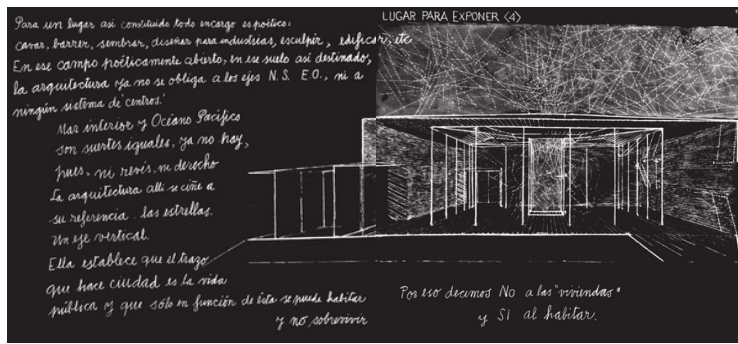 Para un lugar así constituido todo encargo es poético:
cavar, barrer, sembrar, diseñar para industrias, esculpir, edificar, etc
En ese campo poéticamente abierto, en ese suelo así destinado,
la arquitectura ya no se obliga a los ejes N.S. E.O., ni a
ningún sistema de centros.
Mar interior y Océano Pacífico
son suertes iguales, ya no hay,
pues, ni revés, ni derecho
La arquitectura allí se ciñe a
su referencia. las estrellas.
Un eje vertical.
Ella establece que el trazo
que hace ciudad es la vida
pública y que sólo en función de ésta se puede habitar
y no sobrevivir
LUGAR PARA EXPONER <4>
Por eso decimos No a las "viviendas"
y SI al habitar.